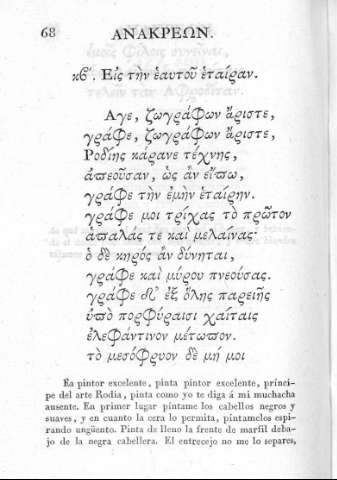 68 ΑΝΑΚΡΕΩΝ.
κθʹ. Εἰς τὴν ἑαυτοῦ ἑταίραν.
Αγε, ζωγράφων ἄριστε,
γράφε, ζωγράφων ἄριστε,
Ροδίης κάρανε τέχνης,
ἀπεοῦσαν, ὡς ἂν εἴπω,
γράφε τὴν ἐμὴν ἑταίρην.
γράφε μοι τρίχας τὸ πρῶτον
ἁπαλάς τε καὶ μελαίνας·
ὁ δὲ κηρὸς ἂν δύνηται,
γράφε καὶ μύρου πνεούσας.
γράφε δ’ ἐξ ὅλης παρειῆς
ὑπὸ πορφύραισι χαίταις
ἐλεφάντινον μέτωπον.
τὸ μεσόφρυον δὲ μή μοι
Ea pintor excelente, pinta pintor excelente, prínci-
pe del arte Rodia, pinta como yo te diga á mi muchacha
ausente. En primer lugar píntame los cabellos negros y
suaves, y en cuanto la cera lo permita, píntamelos espi-
rando ungüento. Pinta de lleno la frente de marfil deba-
jo de la negra cabellera. El entrecejo no me lo separes,